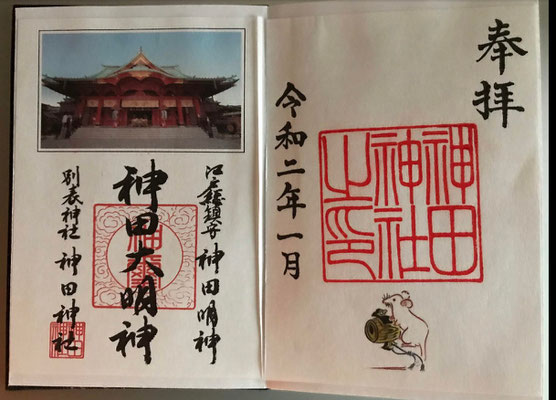 奉拝
神田
神社
之印
令和二年一月
江戸総鎮守 神田明神
神田大明神
別表神社 神田神社